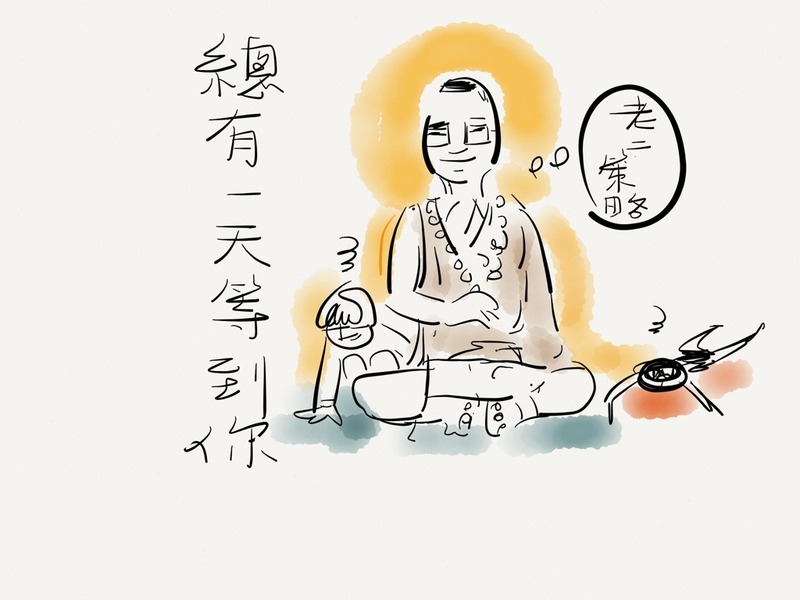 總有一天等到你
老二策略